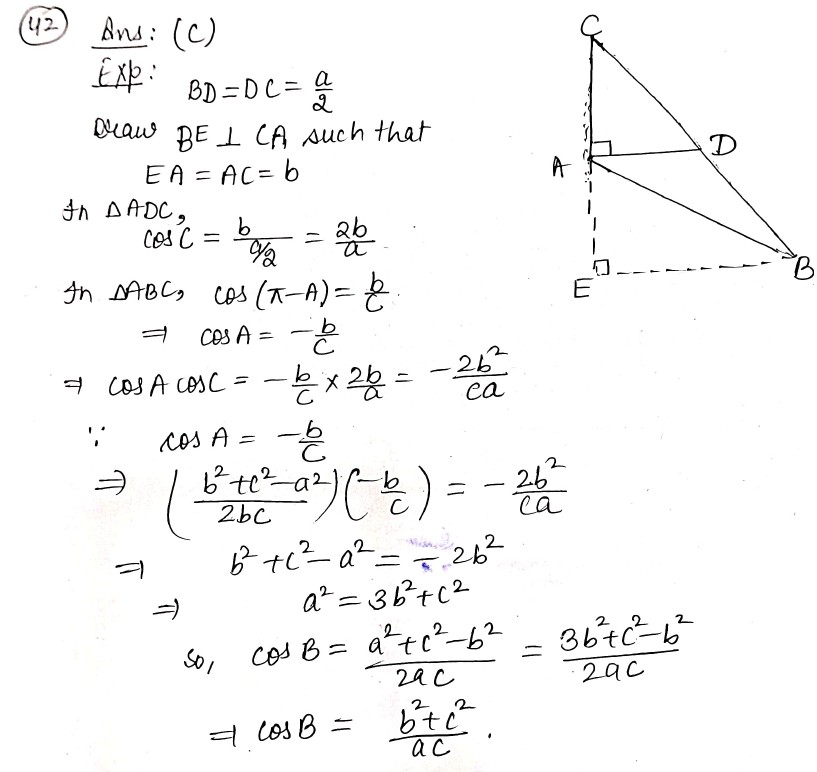 42 Ans: (C)
Exp:
BD = DC = a/2
Draw BE ⊥ CA such that
EA = AC = b
In ΔADC,
cos C = b/(a/2) = 2b/a
In ΔABC, cos(π-A) = b/c
⇒ cos A = -b/c
⇒ cos A cos C = -b/c × 2b/a = -2b²/ca
∵ cos A = -b/c
⇒ ((b²+c²-a²)/2bc)(-b/c) = -2b²/ca
⇒ b²+c²-a² = -2b²
⇒ a² = 3b²+c²
So, cos B = (a²+c²-b²)/2ac = (3b²+c²-b²)/2ac
⇒ cos B = (b²+c²)/ac.
C
A
D
E
B